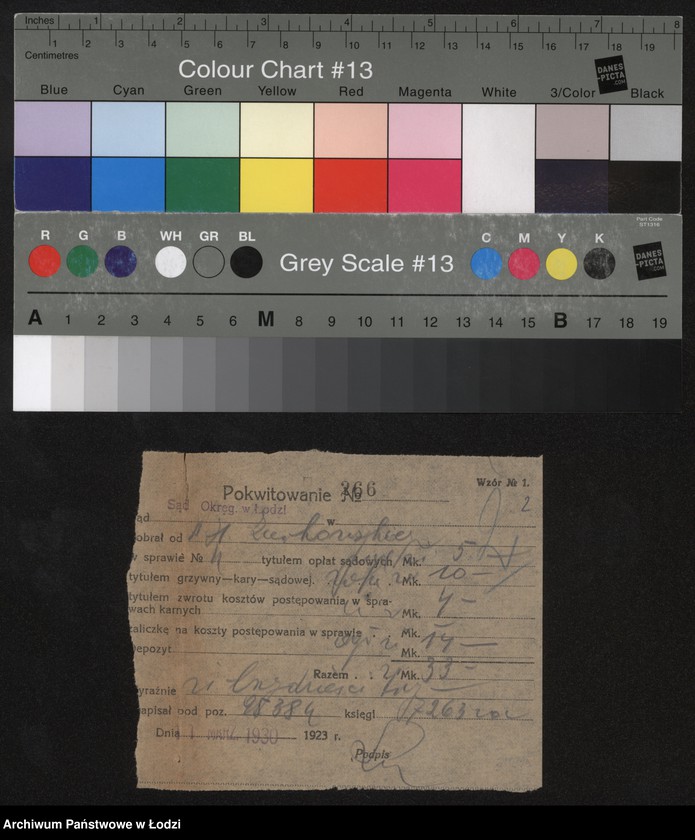 Inches 1 2 3 4 5 6 7 8
1 2 3 4 5 6 7 8 9 10 11 12 13 14 15 16 17 18 19
Centimetres
Colour Chart #13
DANES-PICTA.COM
Blue Cyan Green Yellow Red Magenta White 3/Color Black
Part Code
ST1316
R G B WH GR BL
Grey Scale #13
C M Y K
DANES-PICTA.COM
A 1 2 3 4 5 6 M 8 9 10 11 12 13 14 15 B 17 18 19
Wzór № 1.
Pokwitowanie № 366
2
Sąd Okręg. w Łodzi
ąd w
obrał od
w sprawie № tytułem opłat sądowych, Mk. 5
tytułem grzywny—kary—sądowej. Mk. 10 —
tytułem zwrotu kosztów postępowania w spra-
wach karnych Mk. 4 —
zaliczkę na koszty postępowania w sprawie Mk. 14 —
epozyt Mk.
Razem Mk. 33 —
yraźnie
apisał pod poz. księgi
Dnia 1 MARZ. 1930 1923 r.
Podpis
Archiwum Państwowe w Łodzi